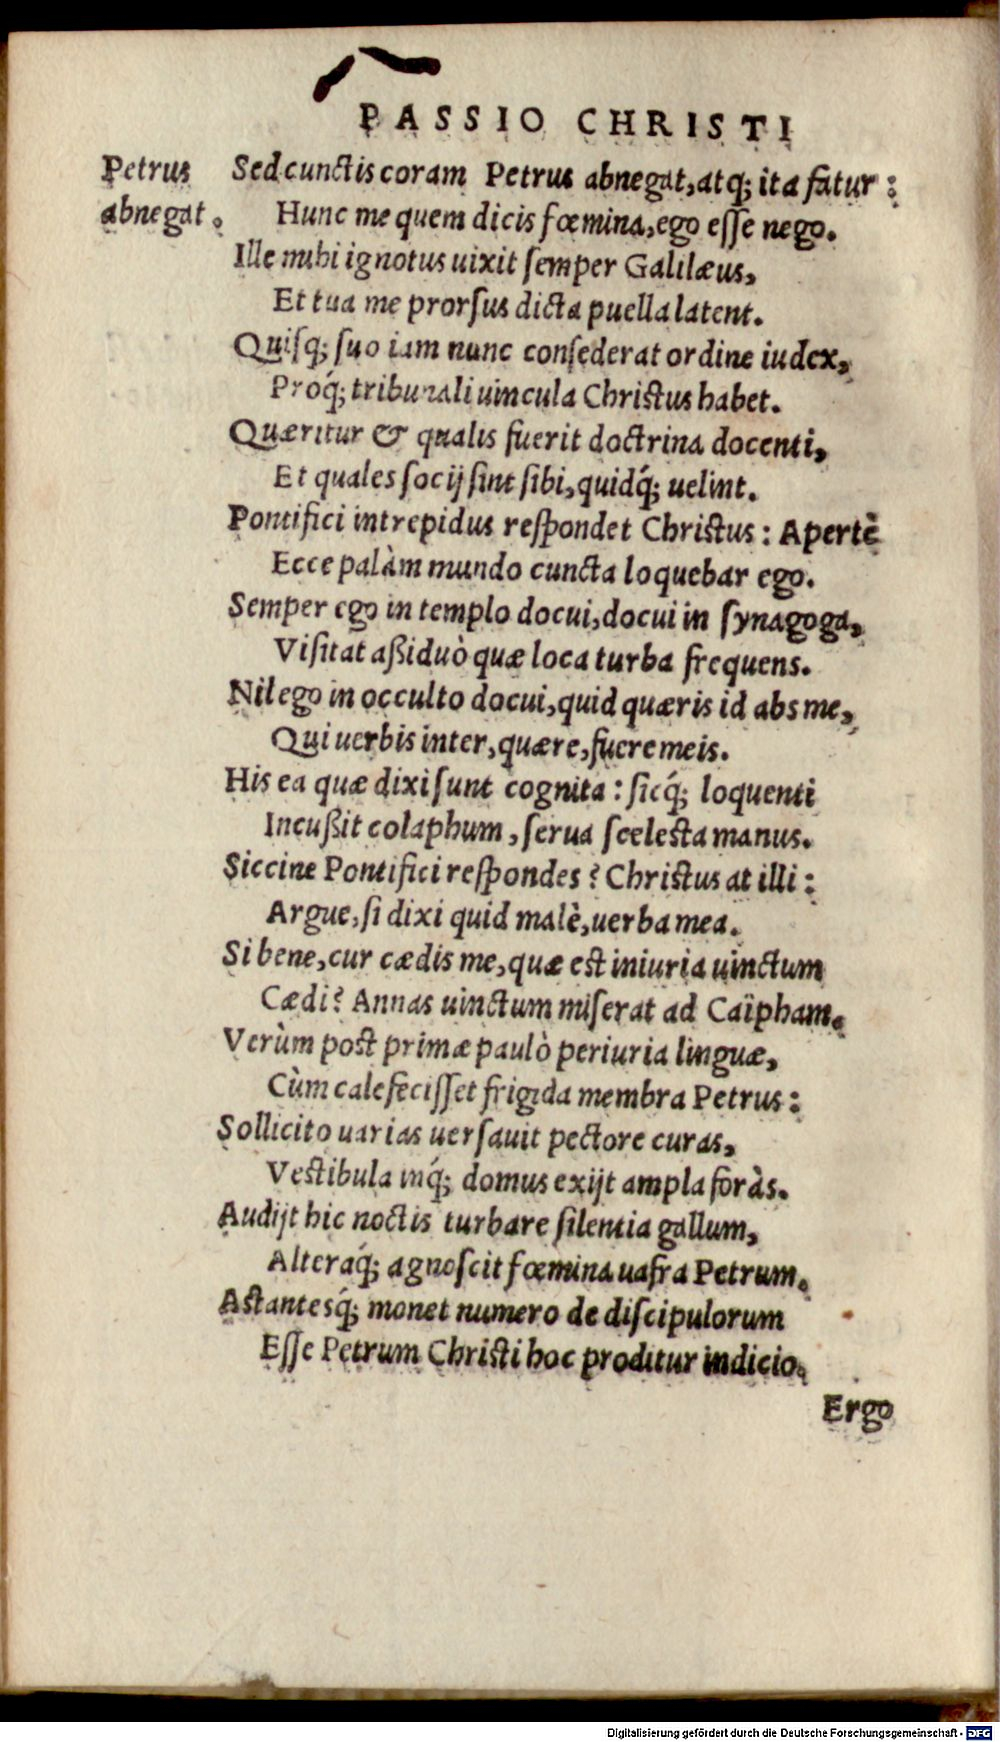 PASSIO CHRISTI
Petrus
abnegat.
Sed cunctis coram Petrus abnegat, atq; ita fatur:
Hunc me quem dicis fœmina, ego esse nego.
Ille mihi ignotus uixit semper Galilæus,
Et tua me prorsus dicta puella latent.
Quisq; suo iam nunc consederat ordine iudex,
Proq́; tribunali uincula Christus habet.
Quæritur & qualis fuerit doctrina docenti,
Et quales socij sint sibi, quidq́; uelint.
Pontifici intrepidus respondet Christus: Apertè
Ecce palàm mundo cuncta loquebar ego.
Semper ego in templo docui, docui in synagoga,
Visitat aßiduò quæ loca turba frequens.
Nil ego in occulto docui, quid quæris id abs me,
Qui uerbis inter, quære, fuere meis.
His ea quæ dixi sunt cognita: sicq́; loquenti
Incußit colaphum, serua scelesta manus.
Siccine Pontifici respondes? Christus at illi:
Argue, si dixi quid malè, uerba mea.
Si bene, cur cædis me, quæ est iniuria uinctum
Cædi? Annas uinctum miserat ad Caïpham.
Verùm post primæ paulò periuria linguæ,
Cùm calefecisset frigida membra Petrus:
Sollicito uarias uersauit pectore curas,
Vestibula inq́; domus exijt ampla foràs.
Audijt hic noctis turbare silentia gallum,
Alteraq́; agnoscit fœmina uafra Petrum.
Astantesq́; monet numero de discipulorum
Esse Petrum Christi hoc proditur indicio.
Ergo
Digitalisierung gefördert durch die Deutsche Forschungsgemeinschaft - DFG